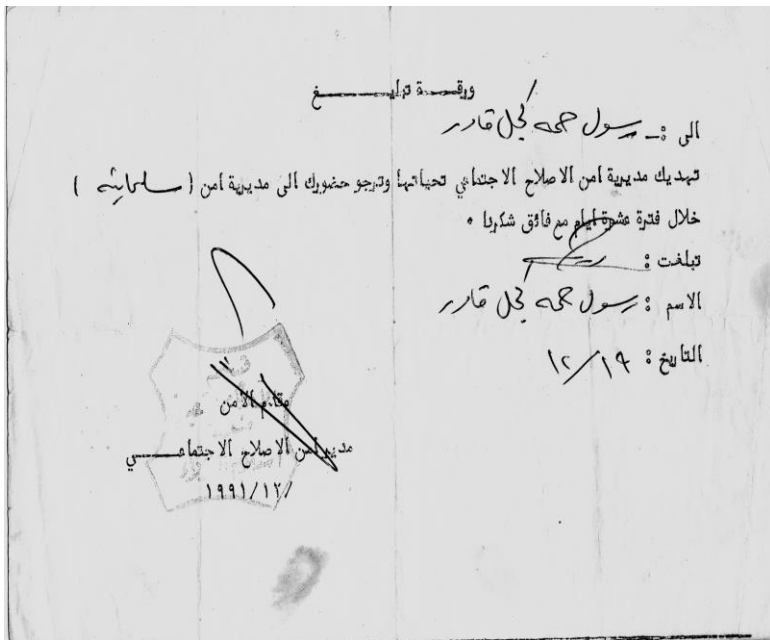 ورقـــة تبليـــــــغ
الى :ـ رسول حمه كجل قادر
تهديك مديرية امن الاصلاح الاجتماعي تحياتها وترجو حضورك الى مديرية امن ( سليمانيه )
خلال فترة عشرة ايام مع فائق شكرنا ٠
تبلغت :
الاسم : رسول حمه كجل قادر
التاريخ : ١٢/١٩
مقدم الامن
مدير امن الاصلاح الاجتماعــــي
/١٩٩١/١٢